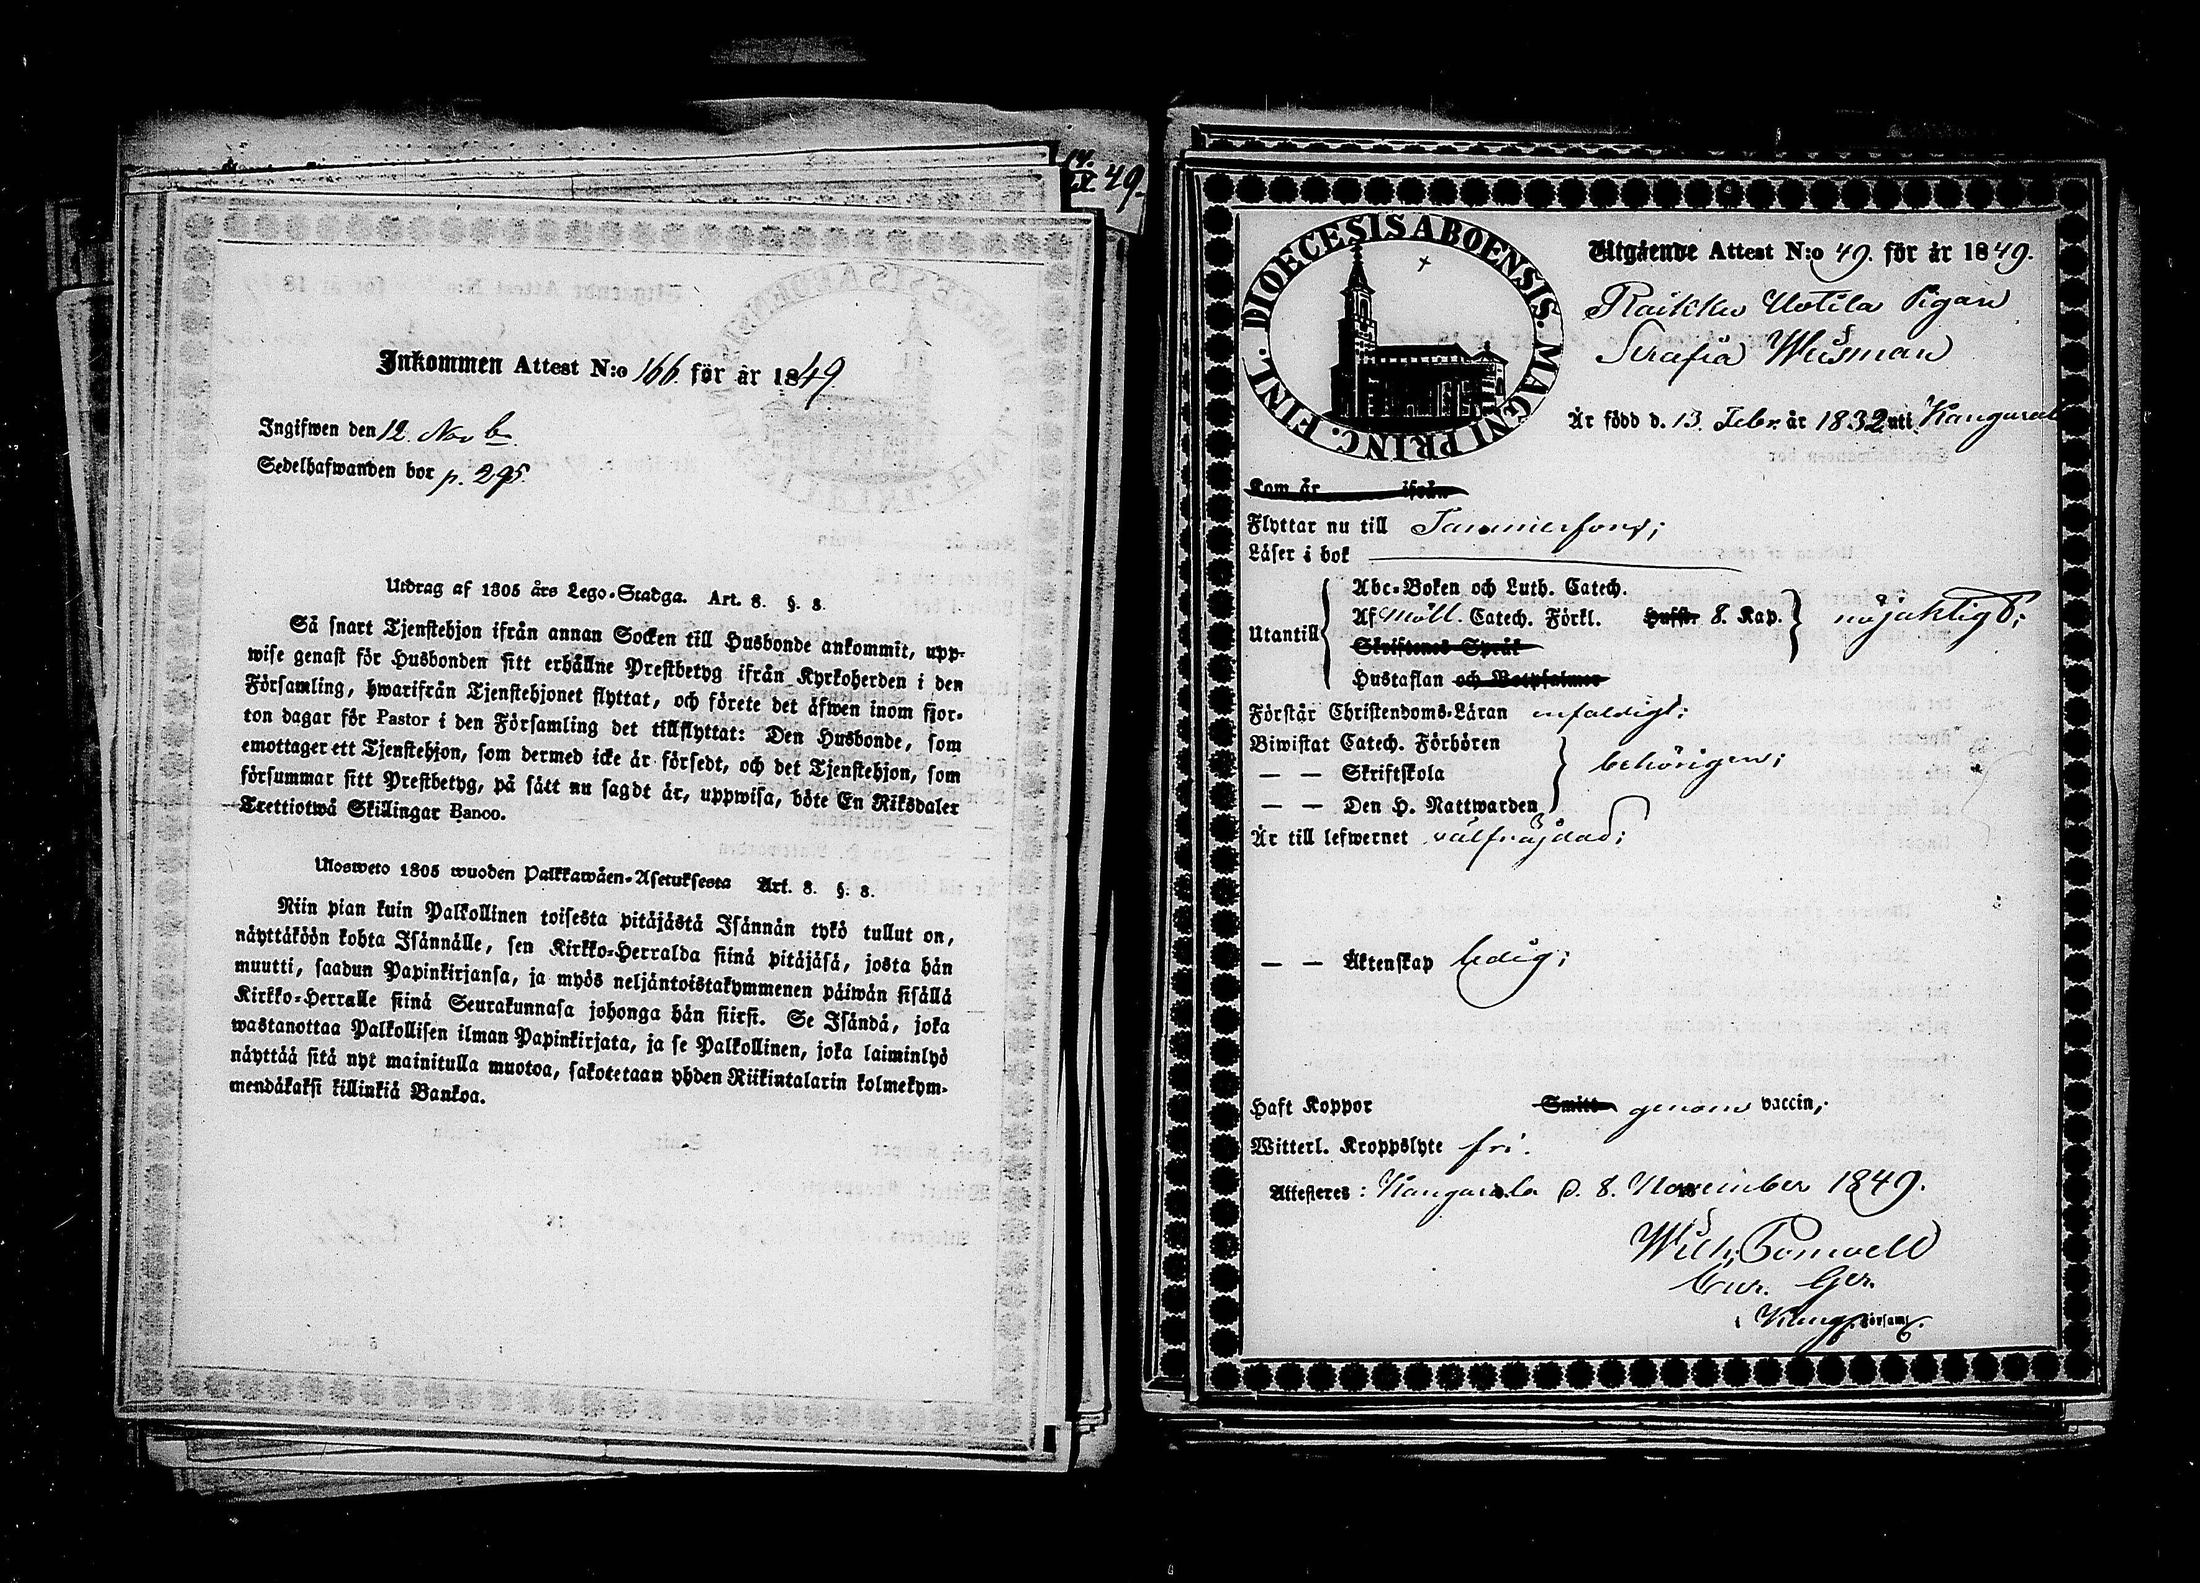 Inkommen Attest N:o 166. för år 1849
Ingifwen den 12. Novb.
Sedelhafwanden bor p. 295.
Utdrag af 1805 års Lego-Stadga. Art. 8. §. 8.
Så snart Tjenstehjon ifrån annan Socken till Husbonde ankommit, upp-
wise genast för Husbonden sitt erhållne Prestbetyg ifrån Kyrkoherden i den
Församling, hwarifrån Tjenstehjonet flyttat, och förete det äfwen inom fjor-
ton dagar för Pastor i den Församling det tillflyttat: Den Husbonde, som
emottager ett Tjenstehjon, som dermed icke är försedt, och det Tjenstehjon, som
försummar sitt Prestbetyg, på sätt nu sagdt är, uppwisa, böte En Riksdaler
Trettiotwå Skillingar Banco.
Ulosweto 1805 wuoden Palkkawäen-Asetuksesta Art. 8. §. 8.
Niin pian kuin Palkollinen toisesta pitäjästä Isännän tykö tullut on,
näyttäköön kohta Isännälle, sen Kirkko-Herralda siinä pitäjäsä, josta hän
muutti, saadun Papinkirjansa, ja myös neljäntoistakymmenen päiwän sisällä
Kirkko-Herralle siinä Seurakunnasa johonga hän siirsi. Se Isändä, joka
wastanottaa Palkollisen ilman Papinkirjata, ja se Palkollinen, joka laiminlyö
näyttää sitä nyt mainitulla muotoa, sakotetaan yhden Riikintalarin kolmekym-
mendäkaksi killinkiä Bankoa.
49.
DIOECESIS ABOENSIS. MAGNI PRINC. FINL.
Utgående Attest N:o 49. för år 1849.
Raikku Uotila Pigan
Serafia Wusman
Är född d. 13. Febr. år 1832 uti Kangasala
Kom år ifrån
Flyttar nu till Tammerfors;
Läser i bok
Utantill
Abc-Boken och Luth. Catech.
Af Möll. Catech. Förkl. Hufstr 8. Kap.
nöjaktigt;
Skriftenes Språk
Hustaflan och Botpsalmer
Förstår Christendoms-Läran enfaldigt;
Biwistat Catech. Förhören
— — Skriftskola
behörigen;
— — Den H. Nattwarden
Är till lefwernet välfräjdad;
— — Äktenskap ledig;
Haft Koppor Smitt genom vaccin;
Witterl. Kroppslyte fri.
Attesteras: Kangasala d. 8. November 1849.
Wilh. Polviander
Cur. Ger.
i Kang. församl.